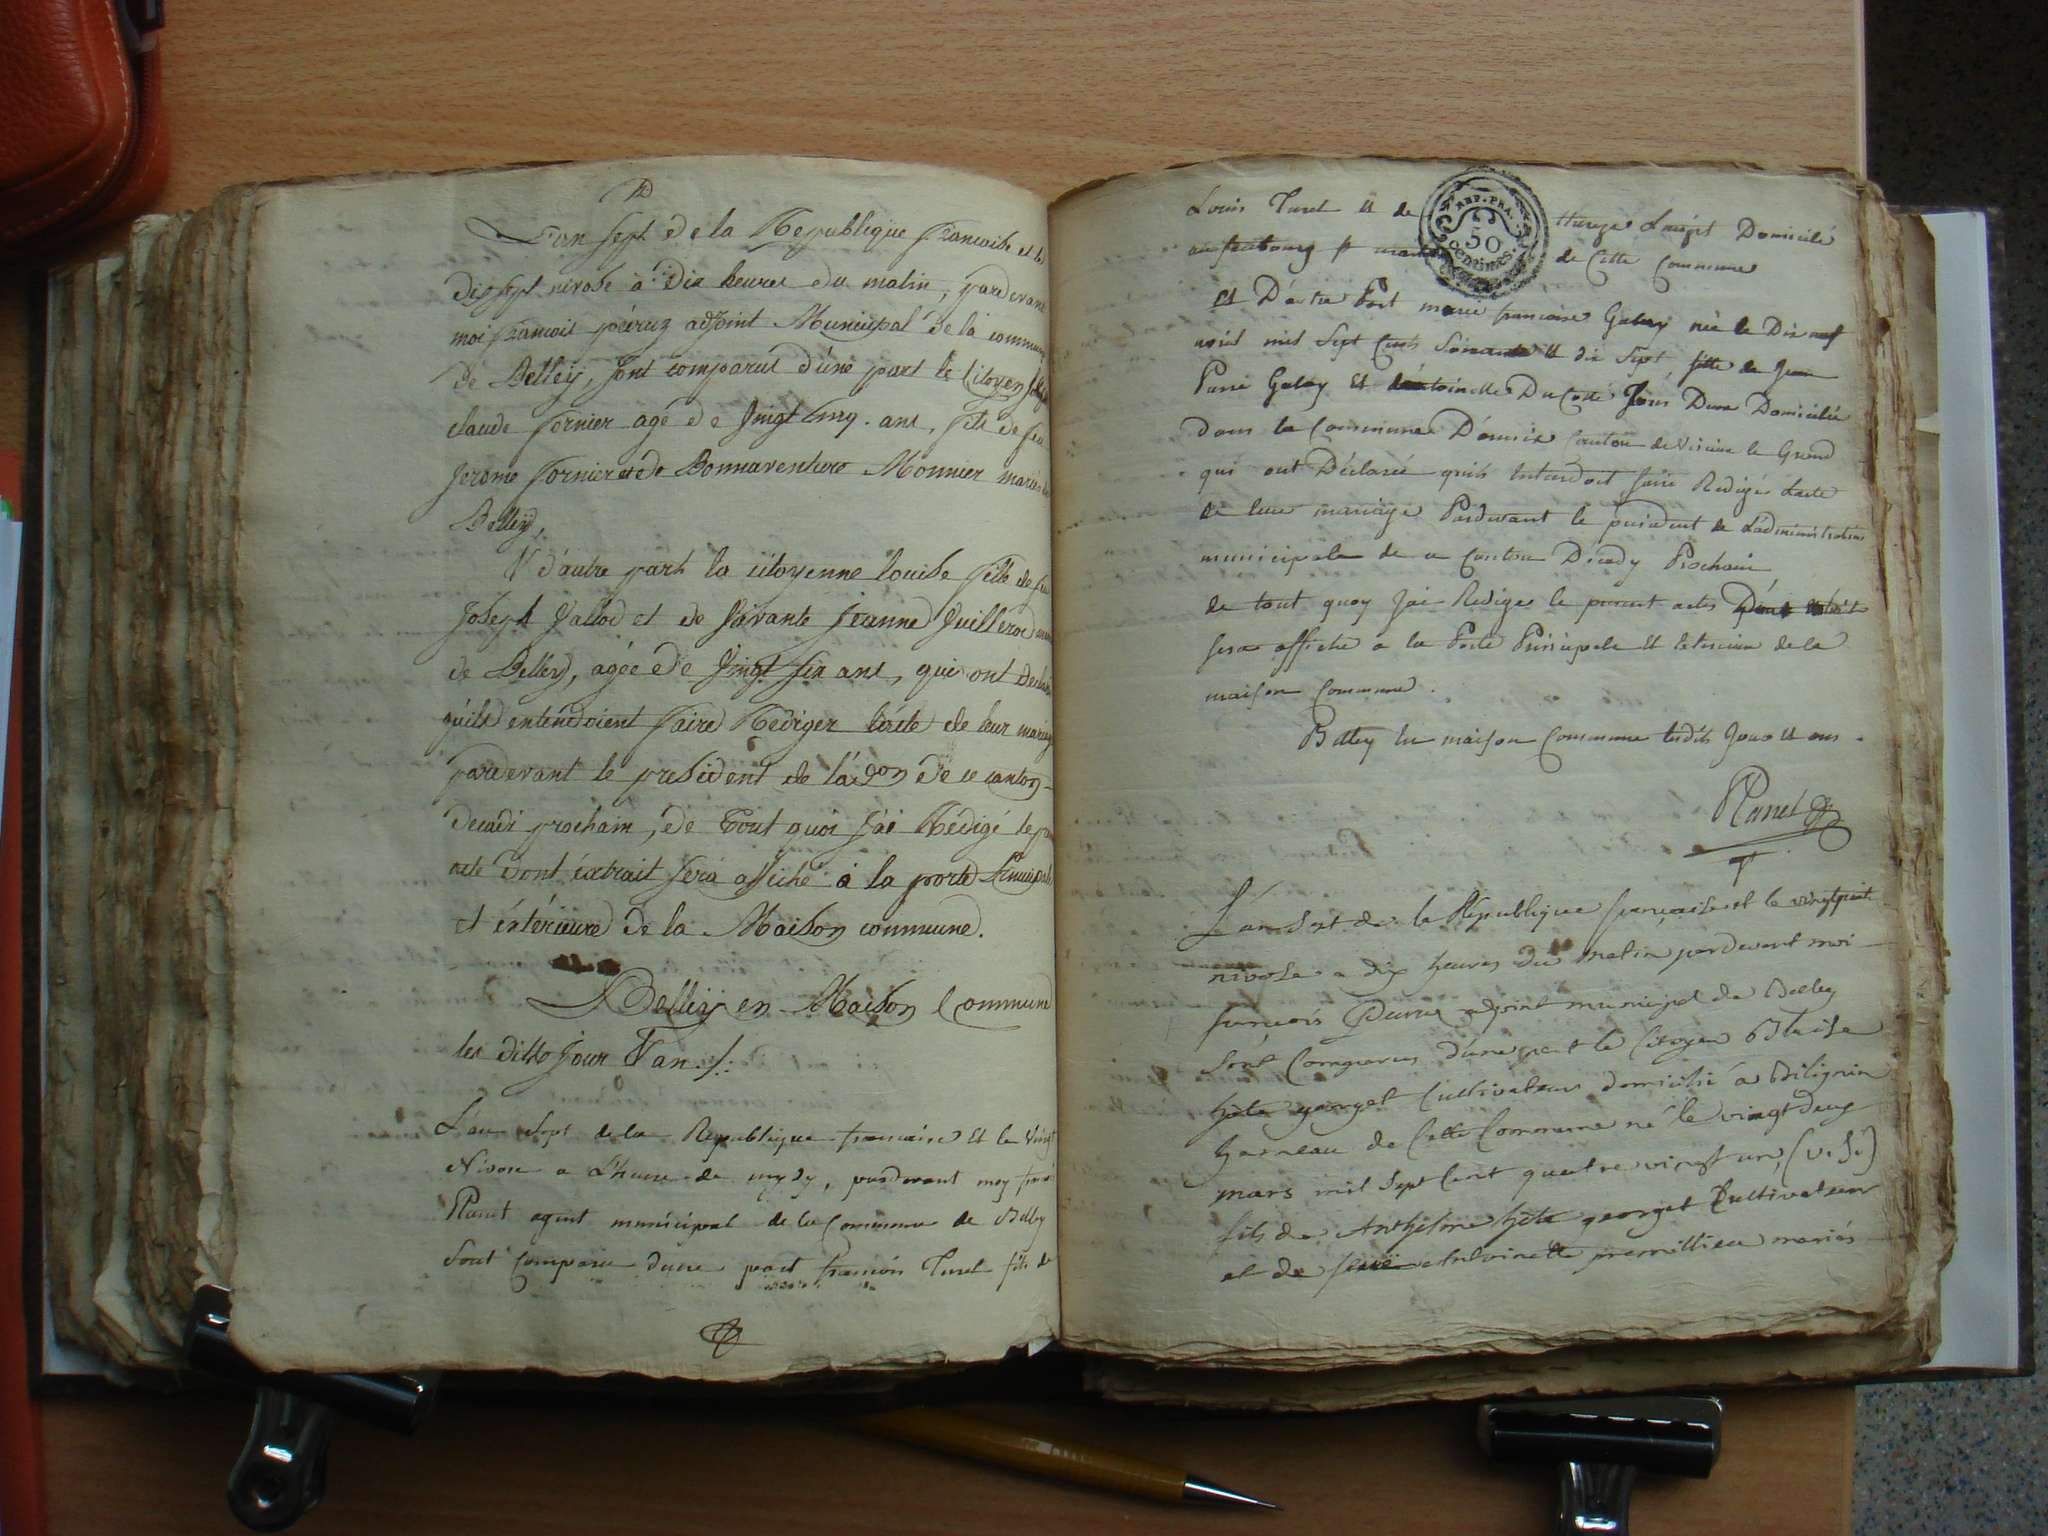 L'an sept de la Republique francoise et le
dix sept nivose à dix heures du matin, pardevant
moi francois peiruz adjoint Municipal de la commune
de Belley, sont comparus d'une part le Citoyen
claude fornier agé de vingt cinq ans, fils de feu
Jerome fornier et de Bonnaventure Monnier mariés
Belley,
& d'autre part la citoyenne louise fille de feu
Joseph Vallod et de vivante Jeanne Vuillerod
de Belley, agée de vingt six ans, qui ont declaré
qu'ils entendoient faire Rediger l'acte de leur mariage
pardevant le president de l'adon de ce canton
decadi prochain, de tout quoi j'ai Rédigé le
acte dont extrait sera affiché à la porte principale
et extérieure de la Maison commune.
Belley en Maison Commune
les ditto jour & an ./:
L'an Sept de la Republique francaise et le vingt
Nivose a L'heure de mydy, pardevant moy
Planet agent municipal de la Commune de Belley
Sont Comparu dune part francois Turel fils de
Louis Turel et de Domicilié
au faubourg de Cette Commune
REP. FRA.
50
CENTIMES
et D'autre Part marie francoise Galay née le Dix neuf
mil Sept Cents Soixante et dix Sept fille de Jean
Pierre Galay et d'antoinette Du Domiciliée
dans la Commune Canton de Virieu le Grand
qui ont Déclaré quils Entendoit faire Rediger Lacte
de leur mariage Pardevant le president de Ladministration
municipale de ce Canton Décady Prochain
de tout quoy Jai Rediger le present acte Dont extrait
sera affiche a la Porte Principale et Exterieure de la
maison Commune.
Belley en maison Commune lesdits Jour et an.
Planet
L'an sept de la République française et le vingthuit
nivose a dix heures du matin pardevant moi
françois adjoint municipal de Belley
Sont Comparus d'une part le Citoyen Blaise
georget Cultivateur domicilié a Billignin
hameau de Cette Commune né le vingt deux
mars mil Sept Cent quatre vingt un, (v. s.)
fils de Anthelme georget Cultivateur
et de antoinette premillieu mariés